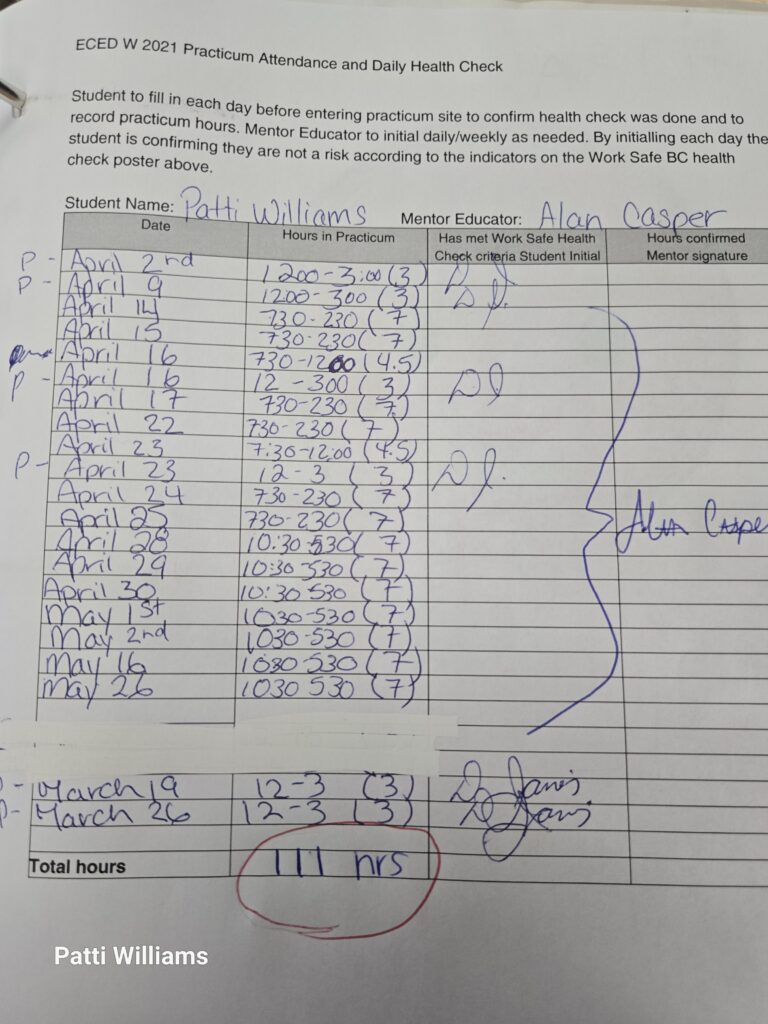 ECED W 2021 Practicum Attendance and Daily Health Check
Student to fill in each day before entering practicum site to confirm health check was done and to
record practicum hours. Mentor Educator to initial daily/weekly as needed. By initialling each day the
student is confirming they are not a risk according to the indicators on the Work Safe BC health
check poster above.
Student Name: Patti Williams Mentor Educator: Alan Casper
Date Hours in Practicum Has met Work Safe Health Check criteria Student Initial Hours confirmed Mentor signature
P - April 2nd 1200-3:00 (3)
P - April 9 1200-300 (3) DJ.
April 14 730-230 (7)
April 15 730-230 (7)
April 16 730-1200 (4.5)
P - April 16 12-300 (3) DJ
April 17 730-230 (7)
April 22 730-230 (7)
April 23 7:30-12:00 (4.5)
P - April 23 12-3 (3) DJ.
April 24 730-230 (7)
April 25 730-230 (7) Alan Caspe
April 28 10:30-530 (7)
April 29 10:30-530 (7)
April 30 10:30 530 (7)
May 1st 1030-530 (7)
May 2nd 1030-530 (7)
May 16 1030-530 (7)
May 26 1030 530 (7)
P - March 19 12-3 (3) D Janis
P - March 26 12-3 (3) D Janis
Total hours 111 hrs
Patti Williams